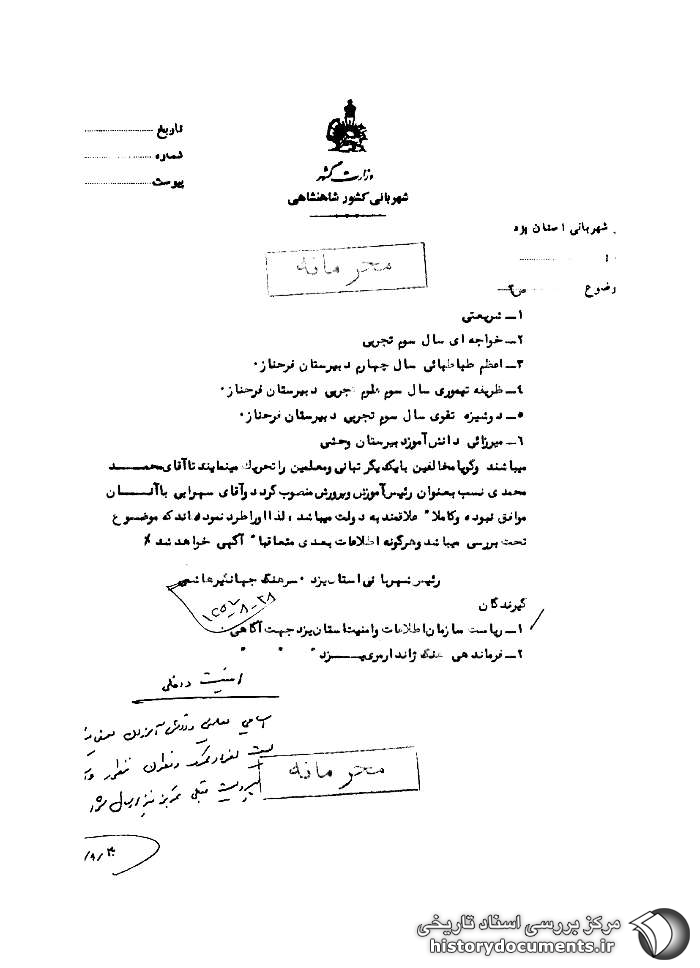 تاریخ
شماره
پیوست
وزارت کشور
شهربانی کشور شاهنشاهی
شهربانی استان یزد
محرمانه
وضوع
ص۲
۱ـ شریعتی
۲ـ خواجه ای سال سوم تجربی
۳ـ اعظم طباطبائی سال چهارم دبیرستان فرحناز.
۴ـ ظریفه تیموری سال سوم علوم تجربی دبیرستان فرحناز.
۵ـ دوشیزه تقوی سال سوم تجربی دبیرستان فرحناز.
۶ـ میرزائی دانش آموز دبیرستان وحشی
میباشند وگویا مخالفین بایکدیگر تبانی ومعلمین را تحریك مینمایند تا آقای محمد
محمدی نسب بعنوان رئیس آموزش وپرورش منصوب گردد وآقای سهرابی باآنان
موافق نبوده وکاملا" علاقمند به دولت میباشد، لذا اورا طرد نموده اند که موضوع
تحت بررسی میباشد وهرگونه اطلاعات بعدی متعاقبا" آگهی خواهد شد /
رئیس شهربانی استان یزد . سرهنگ جهانگیر هاشمی
۲۸-۸-۱۳۵۷
گیرندگان
۱ـ ریاست سازمان اطلاعات وامنیت استان یزد جهت آگاهی.
۲ـ فرماندهی هنگ ژاندارمری یزد " " "
امنیت داخلی
اسامی معلمین و دانش آموزان
لیست
محرمانه
قبلی نیز ارسال شود
۸/۳۰
مرکز بررسی اسناد تاریخی
historydocuments.ir